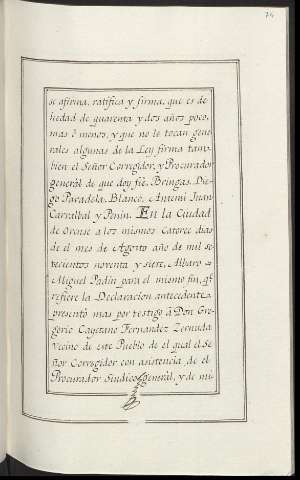 74
se afirma, ratifica y firma, que es de
hedad de quarenta y dos años poco,
mas ô menos, y que no le tocan gene
rales algunas de la Ley firma tam
bien el Señor Corregidor, y Procurador
general de que doy fée. Bringas. Die
go Paradela. Blanco. Antemi Juan
Carralbal y Penin. En la Ciudad
de Orense a los mismos Catorce dias
de el mes de Agosto año de mil se
tecientos noventa y siete, Albaro
Miguel Padin para el mismo fin, qe
refiere la Declaracion antecedente
presentô mas por testigo â Don Gre
gorio Cayetano Fernandez Zernada
vecino de este Pueblo de el qual el Se
ñor Corregidor con asistencia de el
Procurador Sindico general, y de mi